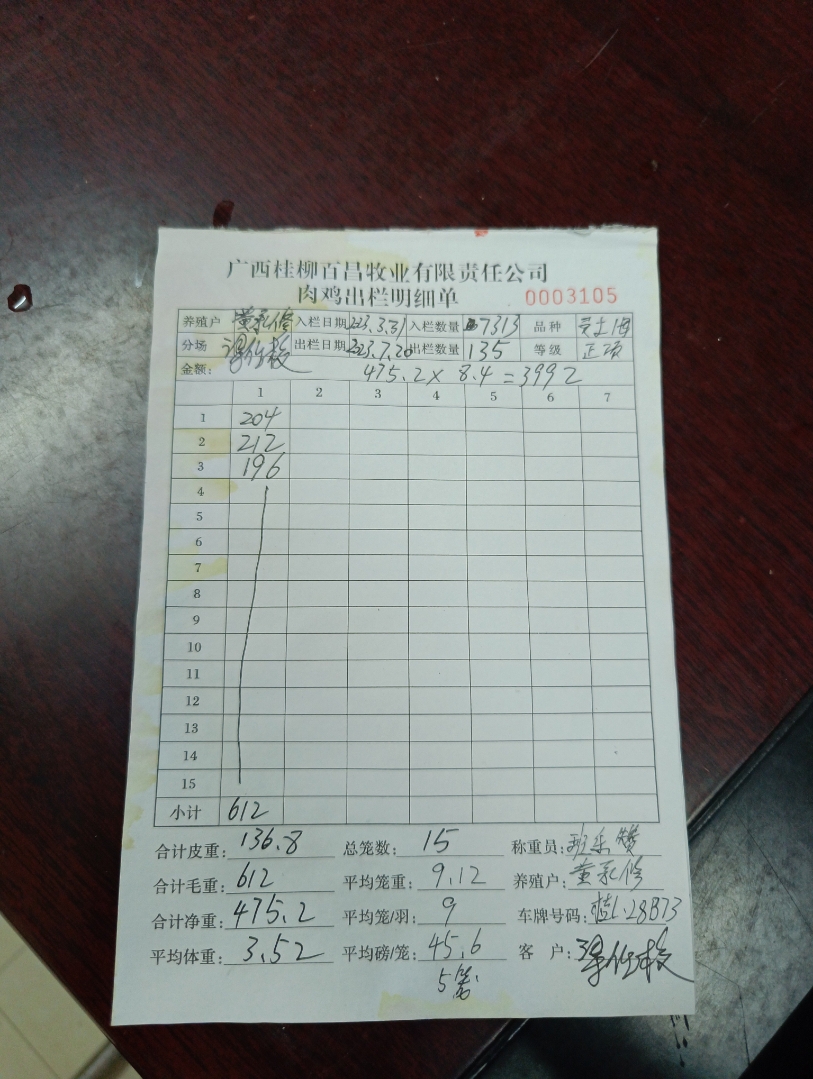 广西桂柳百昌牧业有限责任公司
肉鸡出栏明细单 0003105
养殖户 黄承修 入栏日期 223.3.31 入栏数量 7313 品种
分场 出栏日期 223.7.20 出栏数量 135 等级 正项
金额: 475.2×8.4=3992
1 2 3 4 5 6 7
1 204
2 212
3 196
4
5
6
7
8
9
10
11
12
13
14
15
小计 612
合计皮重: 136.8 总笼数: 15 称重员:
合计毛重: 612 平均笼重: 9.12 养殖户: 黄承修
合计净重: 475.2 平均笼/羽: 9 车牌号码: 桂L·28B73
平均体重: 3.52 平均磅/笼: 45.6 客 户: